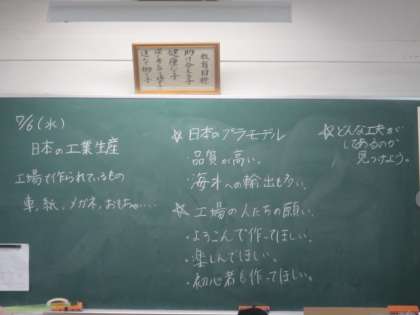 教育目標
助け合える子
健康な子
7/6(水)
日本の工業生産
工場で作られているもの
車、紙、メガネ、おもちゃ….
☆日本のプラモデル
品質が高い。
海外への輸出も多い。
☆工場の人たちの願い。
・よろこんで作ってほしい。
・楽しんでほしい。
・初心者も作ってほしい。
☆どんな工夫が
してあるのか
見つけよう。